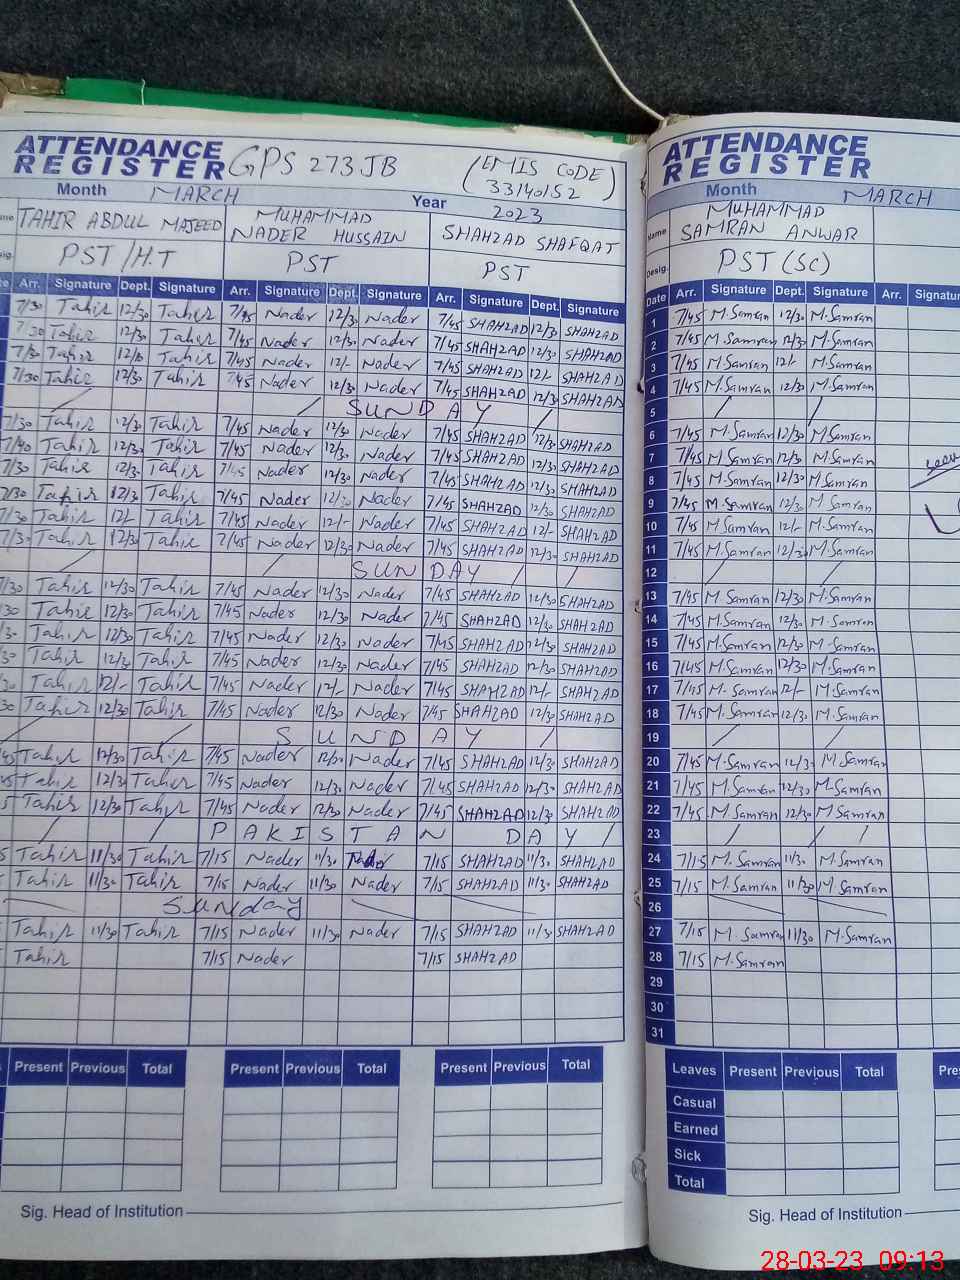 ATTENDANCE
REGISTER GPS 273JB (EMIS CODE 33140152)
Month MARCH Year 2023
TAHIR ABDUL MAJEED MUHAMMAD NADER HUSSAIN SHAHZAD SHAFQAT
PST/H.T PST PST
Arr. Signature Dept. Signature Arr. Signature Dept. Signature Arr. Signature Dept. Signature
7/30 Tahir 12/30 Tahir 7/45 Nader 12/30 Nader 7/45 SHAHZAD 12/30 SHAHZAD
7/30 Tahir 12/30 Tahir 7/45 Nader 12/30 Nader 7/45 SHAHZAD 12/30 SHAHZAD
7/30 Tahir Tahir 7/45 Nader 12/- Nader 7/45 SHAHZAD 12/30 SHAHZAD
7/30 Tahir 12/30 Tahir 7/45 Nader 12/30 Nader 7/45 SHAHZAD 12/- SHAHZAD
7/45 SHAHZAD 12/30 SHAHZAD
SUNDAY
7/30 Tahir 12/30 Tahir 7/45 Nader 12/30 Nader 7/45 SHAHZAD 12/30 SHAHZAD
7/40 Tahir 12/30 Tahir 7/45 Nader 12/30 Nader 7/45 SHAHZAD 12/30 SHAHZAD
7/30 Tahir 12/30 Tahir 7/45 Nader 12/30 Nader 7/45 SHAHZAD 12/30 SHAHZAD
7/30 Tahir 12/30 Tahir 7/45 Nader 12/30 Nader 7/45 SHAHZAD 12/30 SHAHZAD
7/30 Tahir 12/- Tahir 7/45 Nader 12/- Nader 7/45 SHAHZAD 12/- SHAHZAD
7/30 Tahir 12/30 Tahir 7/45 Nader 12/30 Nader 7/45 SHAHZAD 12/30 SHAHZAD
SUNDAY
7/30 Tahir 12/30 Tahir 7/45 Nader 12/30 Nader 7/45 SHAHZAD 12/30 SHAHZAD
30 Tahir 12/30 Tahir 7/45 Nader 12/30 Nader 7/45 SHAHZAD 12/30 SHAHZAD
/30 Tahir 12/30 Tahir 7/45 Nader 12/30 Nader 7/45 SHAHZAD 12/30 SHAHZAD
/30 Tahir 12/30 Tahir 7/45 Nader 12/30 Nader 7/45 SHAHZAD 12/30 SHAHZAD
/30 Tahir 12/- Tahir 7/45 Nader 12/- Nader 7/45 SHAHZAD 12/- SHAHZAD
30 Tahir 12/30 Tahir 7/45 Nader 12/30 Nader 7/45 SHAHZAD 12/30 SHAHZAD
SUNDAY
45 Tahir 12/30 Tahir 7/45 Nader 12/30 Nader 7/45 SHAHZAD 12/30 SHAHZAD
45 Tahir 12/30 Tahir 7/45 Nader 12/30 Nader 7/45 SHAHZAD 12/30 SHAHZAD
5 Tahir 12/30 Tahir 7/45 Nader 12/30 Nader 7/45 SHAHZAD 12/30 SHAHZAD
PAKISTAN DAY
5 Tahir 11/30 Tahir 7/15 Nader 11/30 Nader 7/15 SHAHZAD 11/30 SHAHZAD
5 Tahir 11/30 Tahir 7/15 Nader 11/30 Nader 7/15 SHAHZAD 11/30 SHAHZAD
Sunday
Tahir 11/30 Tahir 7/15 Nader 11/30 Nader 7/15 SHAHZAD 11/30 SHAHZAD
Tahir 7/15 Nader 7/15 SHAHZAD
Present Previous Total Present Previous Total Present Previous Total
Sig. Head of Institution
ATTENDANCE
REGISTER
Month MARCH
Name MUHAMMAD SAMRAN ANWAR
Desig. PST(SC)
Date Arr. Signature Dept. Signature Arr. Signatur
1 7/45 M.Samran 12/30 M.Samran
2 7/45 M.Samran 12/30 M.Samran
3 7/45 M.Samran 12/- M.Samran
4 7/45 M.Samran 12/30 M.Samran
5
6 7/45 M.Samran 12/30 M.Samran
7 7/45 M.Samran 12/30 M.Samran
8 7/45 M.Samran 12/30 M.Samran
9 7/45 M.Samran 12/30 M.Samran
10 7/45 M.Samran 12/- M.Samran
11 7/45 M.Samran 12/30 M.Samran
12
13 7/45 M.Samran 12/30 M.Samran
14 7/45 M.Samran 12/30 M.Samran
15 7/45 M.Samran 12/30 M.Samran
16 7/45 M.Samran 12/30 M.Samran
17 7/45 M.Samran 12/- M.Samran
18 7/45 M.Samran 12/30 M.Samran
19
20 7/45 M.Samran 12/30 M.Samran
21 7/45 M.Samran 12/30 M.Samran
22 7/45 M.Samran 12/30 M.Samran
23
24 7/15 M.Samran 11/30 M.Samran
25 7/15 M.Samran 11/30 M.Samran
26
27 7/15 M.Samran 11/30 M.Samran
28 7/15 M.Samran
29
30
31
Leaves Present Previous Total Pre
Casual
Earned
Sick
Total
Sig. Head of Institution
28-03-23 09:13